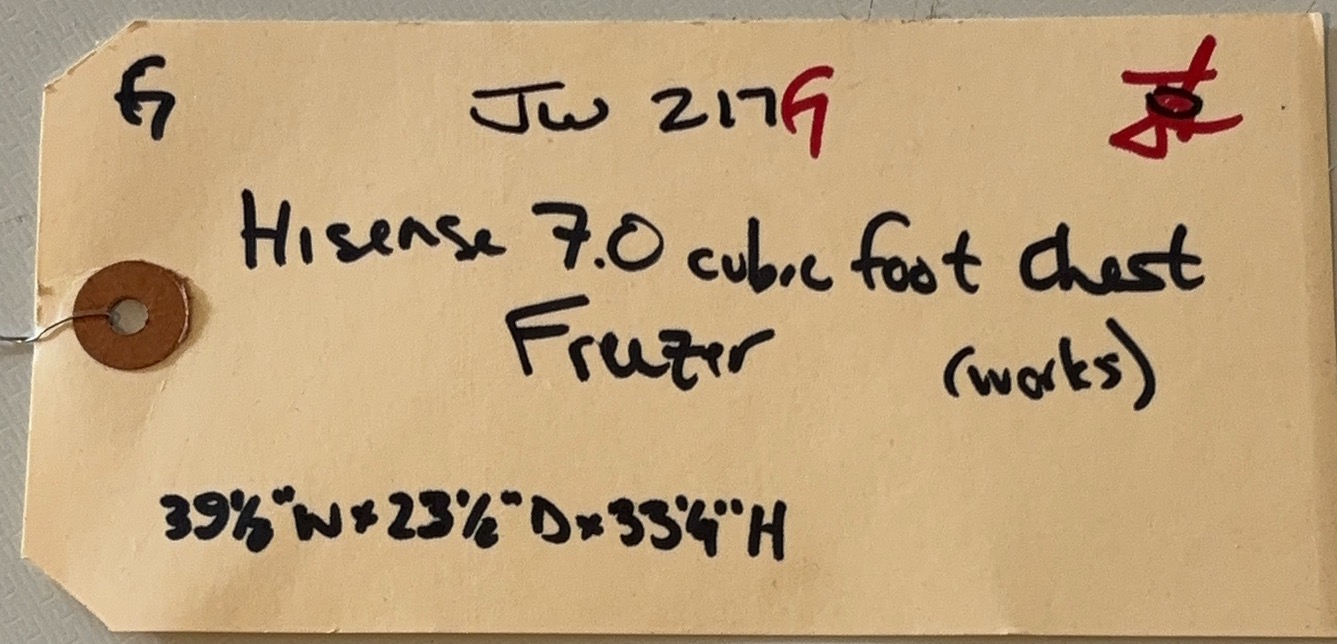 G JW 217G
Hisense 7.0 cubic foot Chest
Freezer (works)
39½"W x 23½"D x 33¼"H